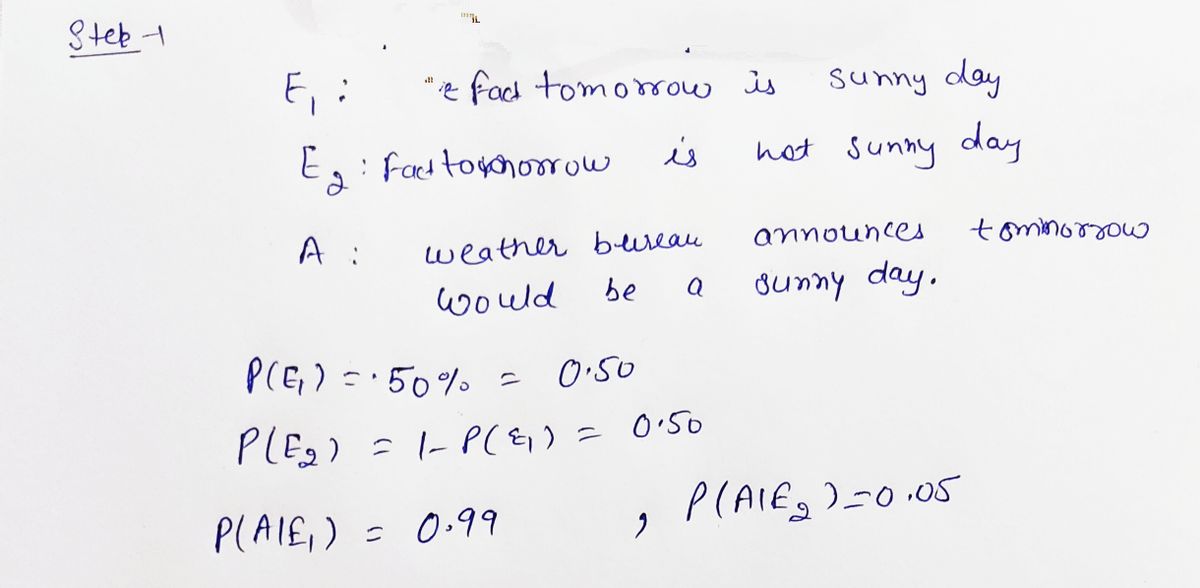 Step-1
E₁ : fact tomorrow is sunny day
E₂ : fact tomorrow is not sunny day
A : weather bureau announces tommorrow
would be a sunny day.
P(E₁) = 50% = 0.50
P(E₂) = 1- P(E₁) = 0.50
P(A|E₁) = 0.99 , P(A|E₂)=0.05